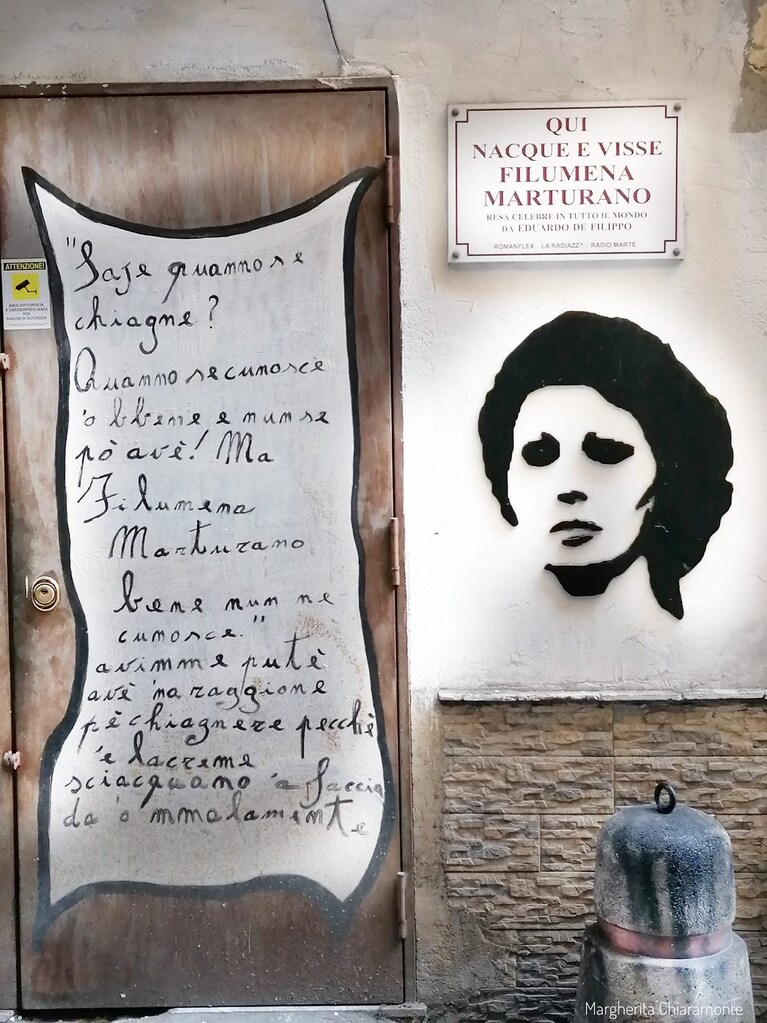 "Saje quanno se
chiagne?
Quanno se cunosce
'o bbene e nun se
pò avè! Ma
Filumena
Marturano
bene nun ne
cunosce."
avimme putè
avè 'na raggione
pè chiagnere pecchè
'e lacreme
sciacquano 'a faccia
da 'o mmalamente
ATTENZIONE!
QUI
NACQUE E VISSE
FILUMENA
MARTURANO
RESA CELEBRE IN TUTTO IL MONDO
DA EDUARDO DE FILIPPO
ROMANFLEX LA RADIAZZA RADIO MARTE
Margherita Chiaramonte